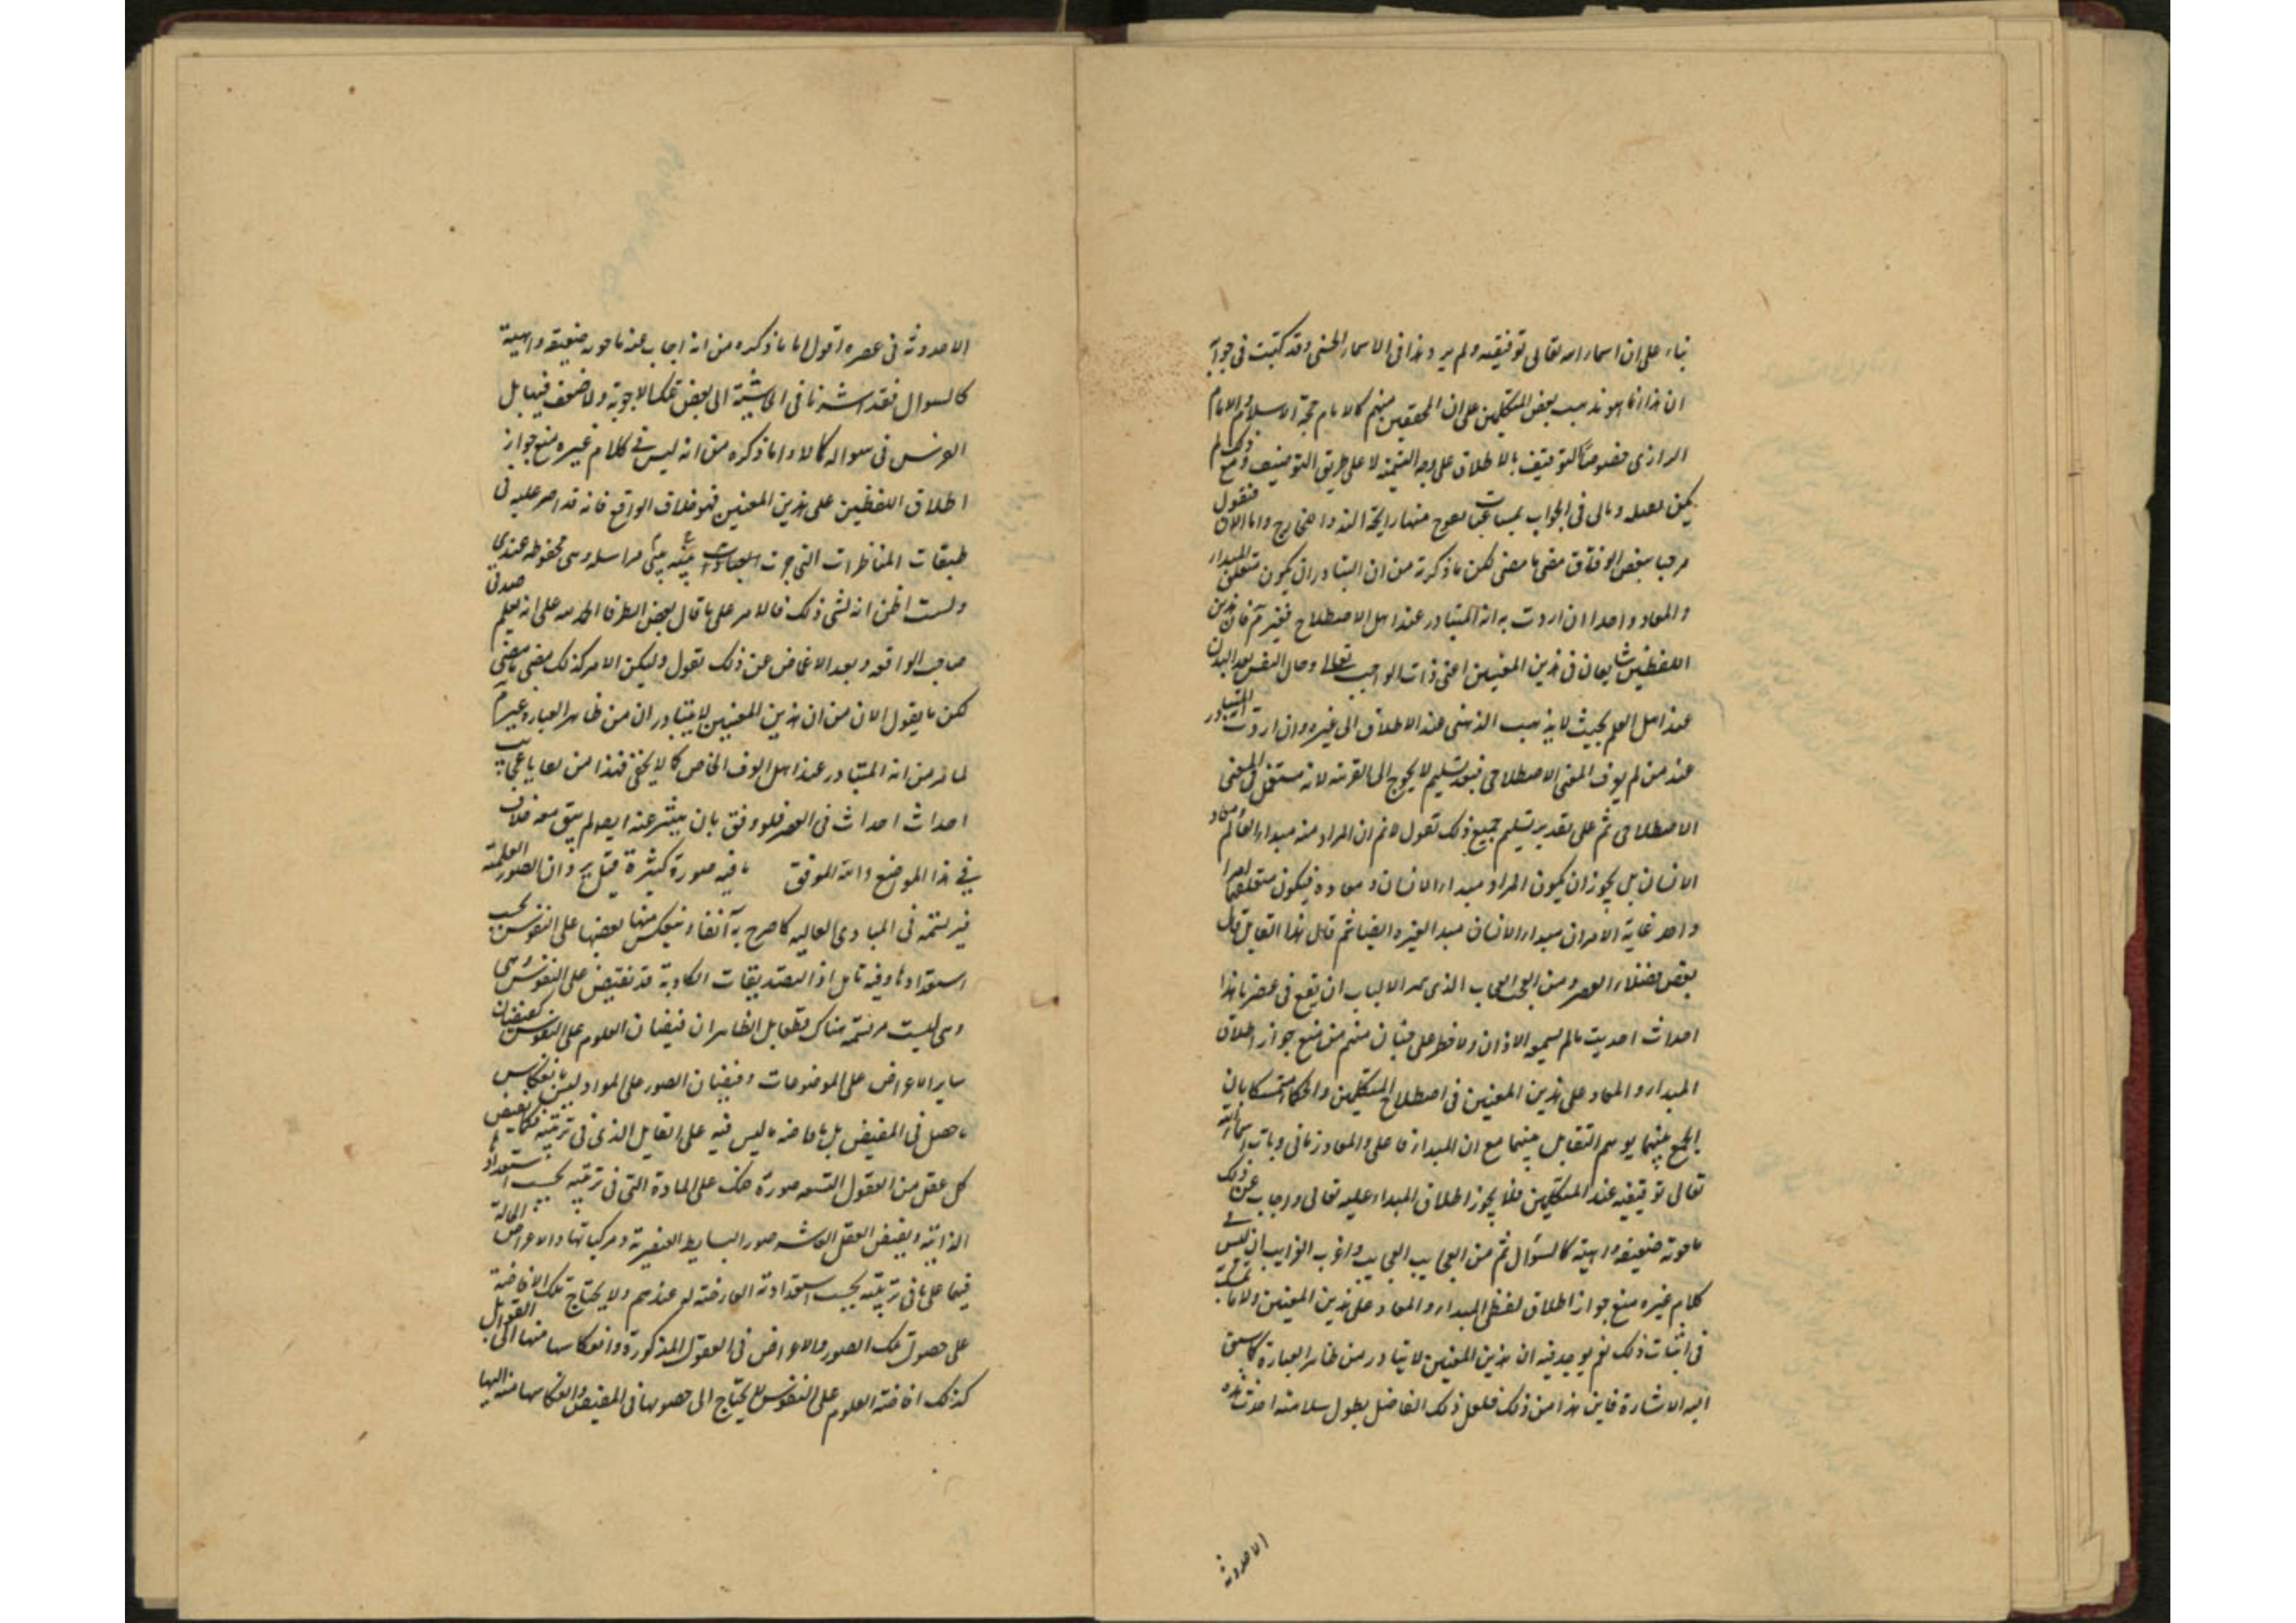 بناء على ان اسماء الله تعالى توقيفيه ولم يرد هذا فى الاسماء الحسنى وقد كتبت فى جوابه
ان هذا انما هو مذهب بعض المتكلمين على ان المحققين منهم كالامام حجة الاسلام والامام
الرازى خصوصا التوقيف بالاطلاق على وجه التسمية لا على طريق التوصيف ومع ذلك لم
يكن بصدده ومالى فى الجواب بمسات يفوح منها رايحة الخارج واما الان فنقول
مرحبا ببعض الوفاق مضى ما مضى لكن ما ذكرته من ان المتبادر ان يكون متعلق المبدا
والمعاد واحدا ان اردت به انه المتبادر عند اهل الاصطلاح فغير مم فان هذين
اللفظين شايعان فى هذين المعنيين اعنى ذات الواجب تعالى وحال النفس بعد البدن
عند اهل العلم بحيث لا يذهب الذهن عند الاطلاق الى غيره وان اردت المتبادر
عند من لم يعرف المعنى الاصطلاحى فبعد تسليم لا يحوج الى القرينة لانه مستعمل فى المعنى
الاصطلاحى ثم على تقدير تسليم جميع ذلك نقول لانم ان المراد منه مبدا العالم ومعاد
الانسان بل يجوز ان يكون المراد مبدا الانسان ومعاده فيكون متعلقهما امرا
واحد غاية الامر ان مبدا الانسان مبدا لغيره ايضا ثم قال هذا القايل قال
بعض فضلاء العصر ومن العجب العجاب الذى لاولى الالباب ان يقع فى عصرنا هذا
احداث احديث ما لم يسمعه الاذان ولا خطر على جنان منهم من منع جواز اطلاق
المبدا والمعاد على هذين المعنيين فى اصطلاح المتكلمين والحكماء متمسكا بان
الجمع بينهما يوهم التقابل بينهما مع ان المبدا فاعلى والمعاد زمانى وبان اسماء الله
تعالى توقيفيه عند المتكلمين فلا يجوز اطلاق المبداء عليه تعالى واجاب عن ذلك
باجوبة ضعيفة واهية كالسؤال ثم من اعجايب العجايب واغرب الغرايب ان ليس فى
كلام غيره منع جواز اطلاق لفظى المبدا والمعاد على هذين المعنيين ولا تمسك
فى اثبات ذلك نعم يوجد فيه ان هذين المعنيين لا يتبادر من ظاهر العبارة كما سبق
اليه الاشارة فاين هذا من ذلك فلعل ذلك الفاضل بطول سلامته احدث هذه
الاحدوثة
الاحدوثة فى عصره اقول اما ما ذكره من انه اجاب عنه باجوبه ضعيفه واهية
كالسوال فقد اشرنا فى الحاشية الى بعض تلك الاجوبة ولا ضعف فيها بل
الوهن فى سواله كالا واما ذكره من انه ليس فى كلام غيره منع جواز
اطلاق اللفظين على هذين المعنيين فهو خلاف الواقع فانه قد اصر عليه فى
طبقات المناظرات التى جرت بينه وبينى مراسله وهى محفوظه عندى
ولست اظن انه نسى ذلك فالامر على ما قال بعض الظرفا الحمد لله على انه يعلم صدقى
صاحب الواقعه وبعد الاغماض عن ذلك نقول وليكن الامر كذلك مضى ما مضى
لكن ما يقول الان من ان هذين المعنيين لا يتبادران من ظاهر العبارة غير مم
لما مر من انه المتبادر عند اهل العرف الخاص كما لا يخفى فهذا من بقايا عجايب
احداث احداث فى العصر فلو وفق بان يبشر عنه ايضا لم يبق معه خلاف
فى هذا الموضع والله الموفق ما فيه صورة كثيرة قيل يريد ان الصور العلمية
غير مرتسمة فى المبادى العاليه كما صرح به آنفا وينعكس منها بعضها على النفوس بحسب
استعدادها وفيه تامل اذ التصديقات الكاذبة قد تفيض على النفوس وهى
وهى ليست مرتسمة هناك قطعا بل الظاهر ان فيضان العلوم على النفوس كفيضان
ساير الاعراض على الموضوعات وفيضان الصور على المواد ليس بانعكاس
ما حصل فى المفيض بل بافاضه ما ليس فيه على القابل الذى فى ترتيبه فكما يفيض
كل عقل من العقول التسعه صورة فلك على المادة التى فى ترتيبه بحسب استعدادها
الذاتية ويفيض العقل العاشر صور البسايط العنصرية ومركباتها والاعراض الحالة
فيها على ما فى ترتيبه بحسب استعداداته العارضة له عندهم ولا يحتاج تلك الافاضة
على حصول تلك الصور والاعراض فى العقول المذكورة وانعكاسها منها الى القوابل
كذلك افاضة العلوم على النفوس لا يحتاج الى حصولها فى المفيض وانعكاسها منه اليها